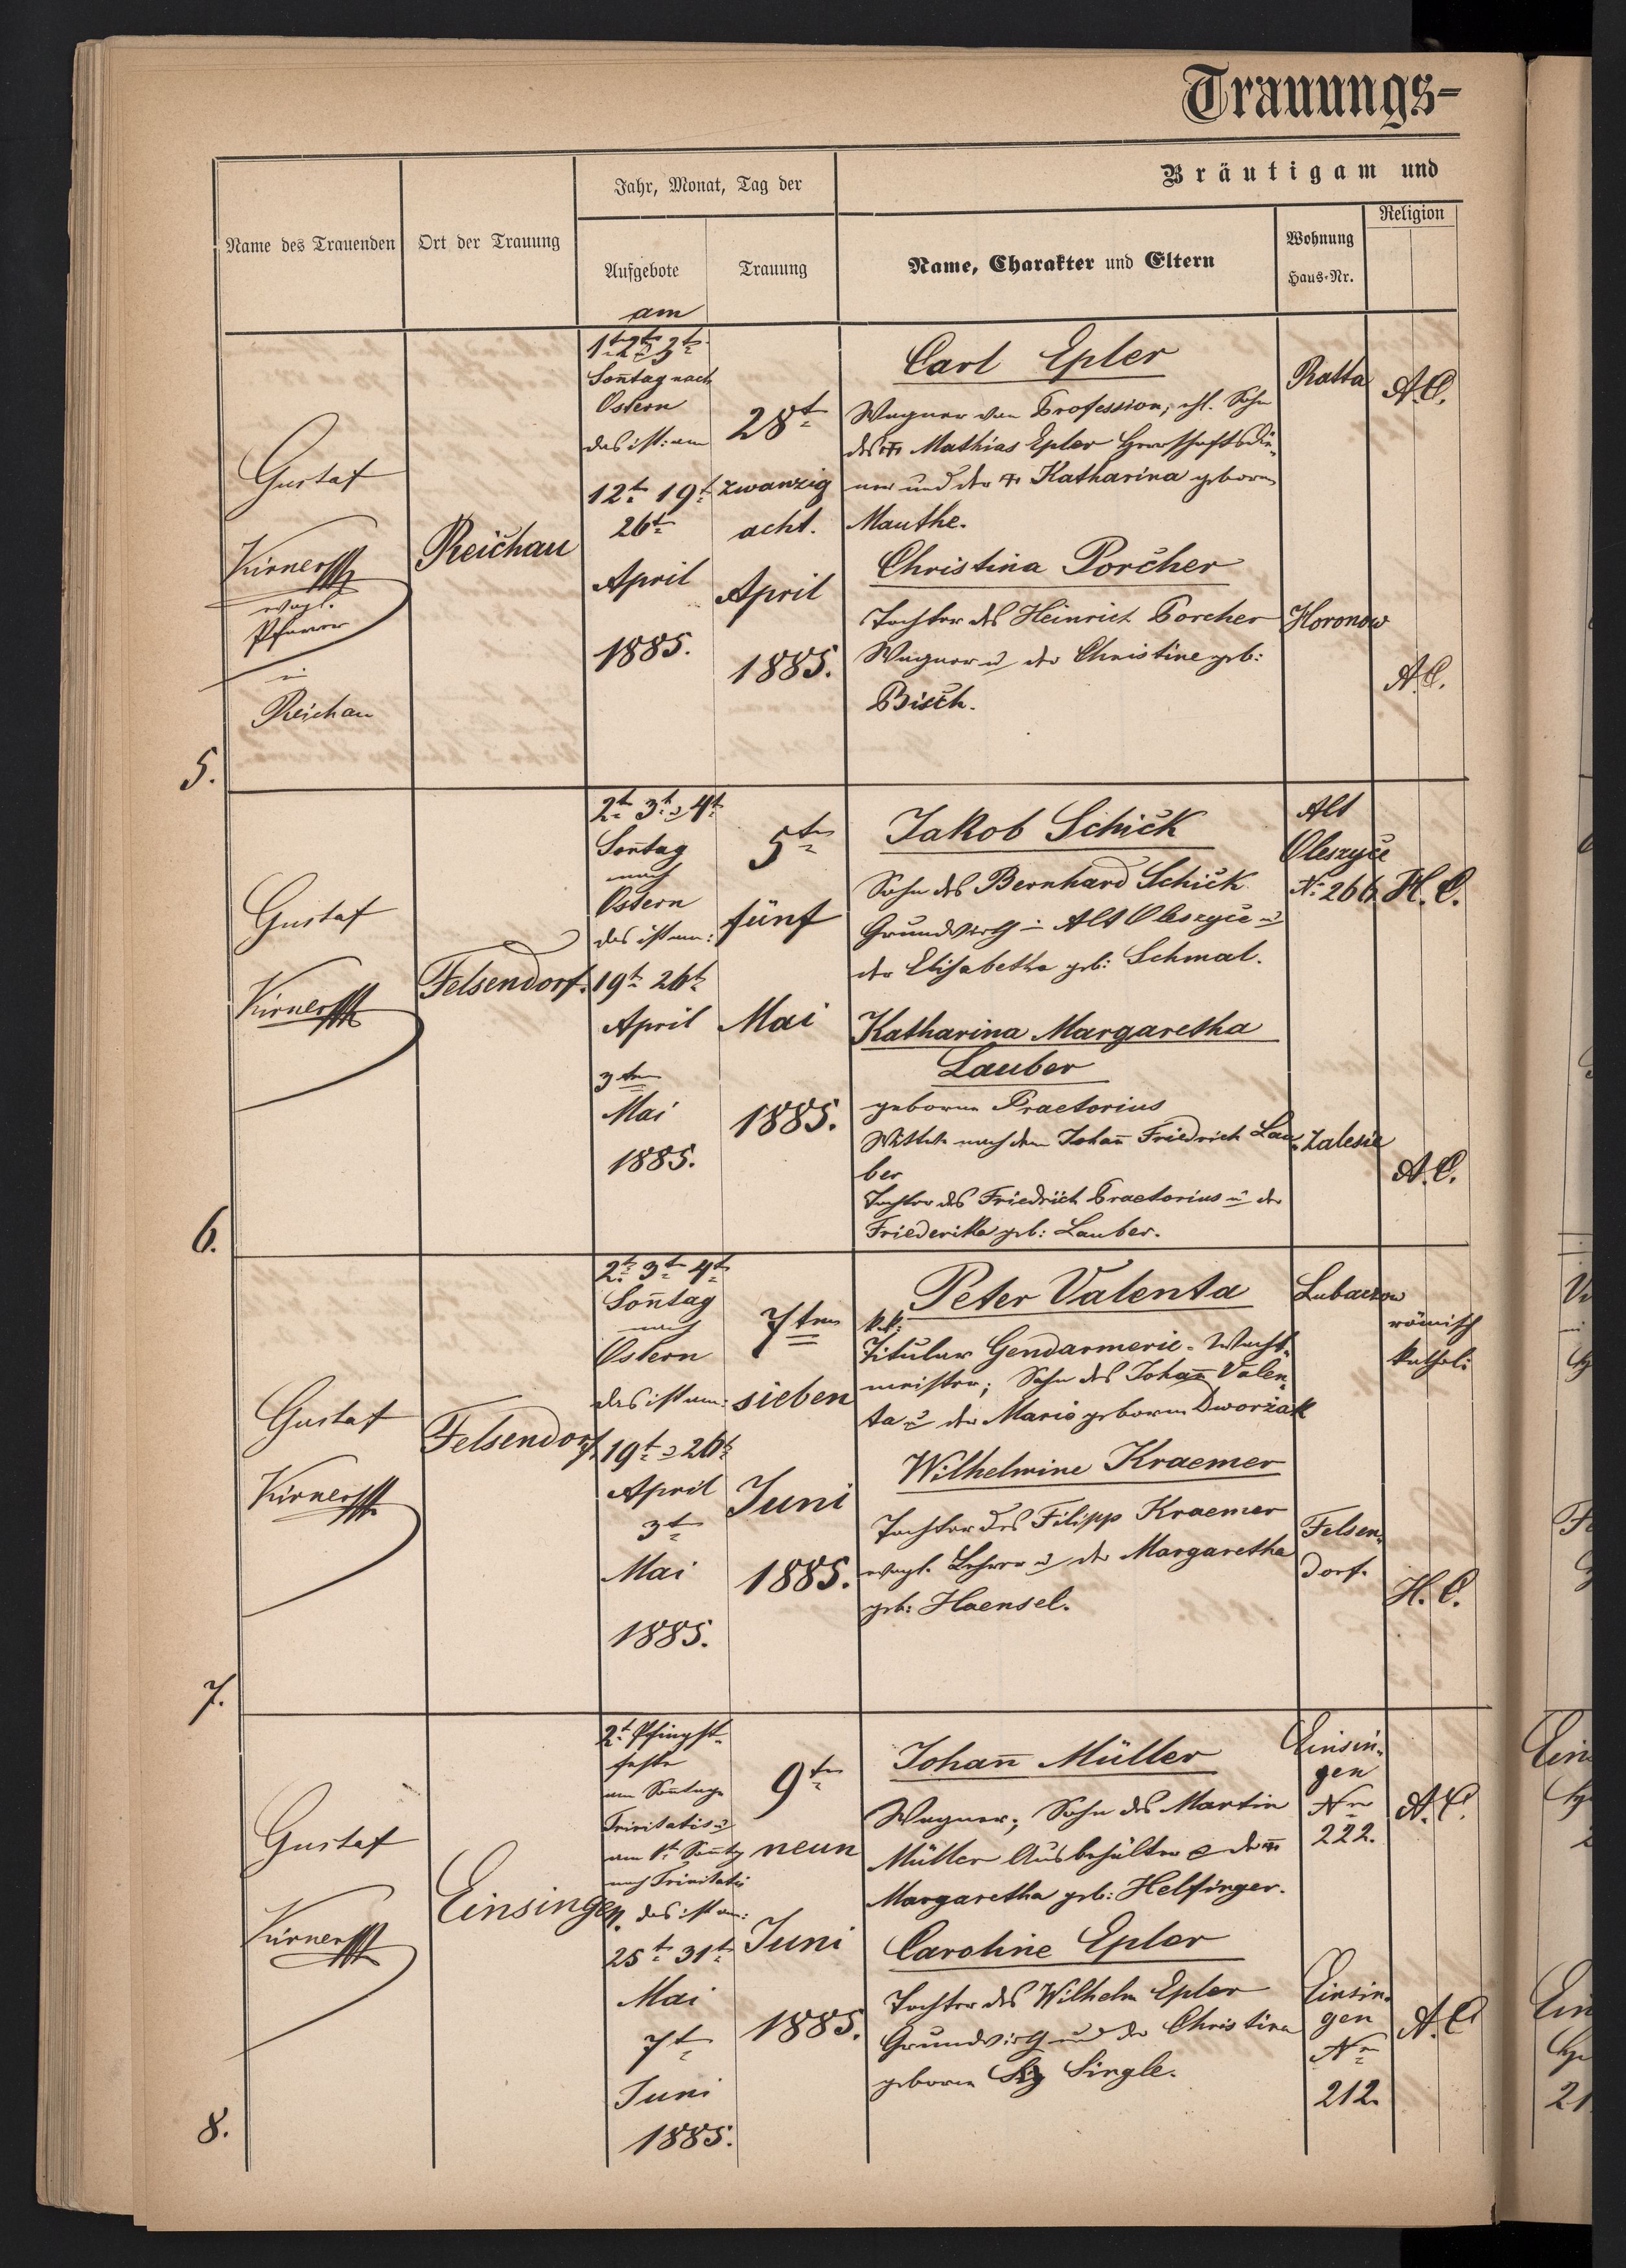 Trauungs-
Name des Trauenden
Ort der Trauung
Jahr, Monat, Tag der
Aufgebote
am
Trauung
Bräutigam und
Name, Charakter und Eltern
Wohnung
Haus-Nr.
Religion
5.
Gustaf
Kirner
evagl.
Pfarrer
in
Reichau
Reichau
1t 2t & 3t
Sontag nach
Ostern
das ist: am
12t 19t
26t
April
1885.
28t
zwanzig
acht.
April
1885.
Carl Epler
Wagner von Profession, ehl. Sohn
des Mathias Epler Herrschaftsdie-
ner und der Katharina geborne
Mauthe.
Christina Porcher
Tochter des Heinrich Porcher
Wagner u der Christine geb:
Bisch.
Ratta
Horonow
A.C.
A.C.
6.
Gustaf
Kirner
Felsendorf.
2t 3t & 4t
Sontag
nach
Ostern
das ist am:
19t 26t
April
3ten
Mai
1885.
5ten
fünf
Mai
1885.
Jakob Schick
Sohn des Bernhard Schick
Grundwirth in Alt Oleszyce u
der Elisabetha geb: Schmal.
Katharina Margaretha
Lauber
geborne Praetorius
Wittwe nach dem Johan Friedrich Lau-
ber
Tochter des Friedrich Praetorius u der
Friederika geb: Lauber.
Alt
Oleszyce
N: 266
Zalesie
H.C.
A.C.
7.
Gustaf
Kirner
Felsendorf
2t 3t 4t
Sontag
nach
Ostern
das ist am:
19t & 26t
April
3t
Mai
1885.
7ten
sieben
Juni
1885.
Peter Valenta
k.k:
Titular Gendarmerie-Wacht-
meister; Sohn des Johan Valen-
ta u der Maria geborne Dworżak
Wilhelmine Kraemer
Tochter des Filipp Kraemer
evagl. Lehrer u der Margaretha
geb: Haensel.
Lubaczow
Felsen-
dorf.
römisch
kathol:
H.C.
8.
Gustaf
Kirner
Einsingen.
2t Pfingst-
feste
am Sontage
Trinitatis u
am 1t Sontg
nach Trinitatis
das ist am:
25t 31t
Mai
7t
Juni
1885.
9ten
neun
Juni
1885.
Johan Müller
Wagner; Sohn des Martin
Müller Ausbehälter & der
Margaretha geb: Helfinger.
Caroline Epler
Tochter des Wilhelm Epler
Grundwirth und der Christina
geborne Single.
Einsin-
gen
Nr
222.
Einsin-
gen
Nr
212.
A.C.
A.C